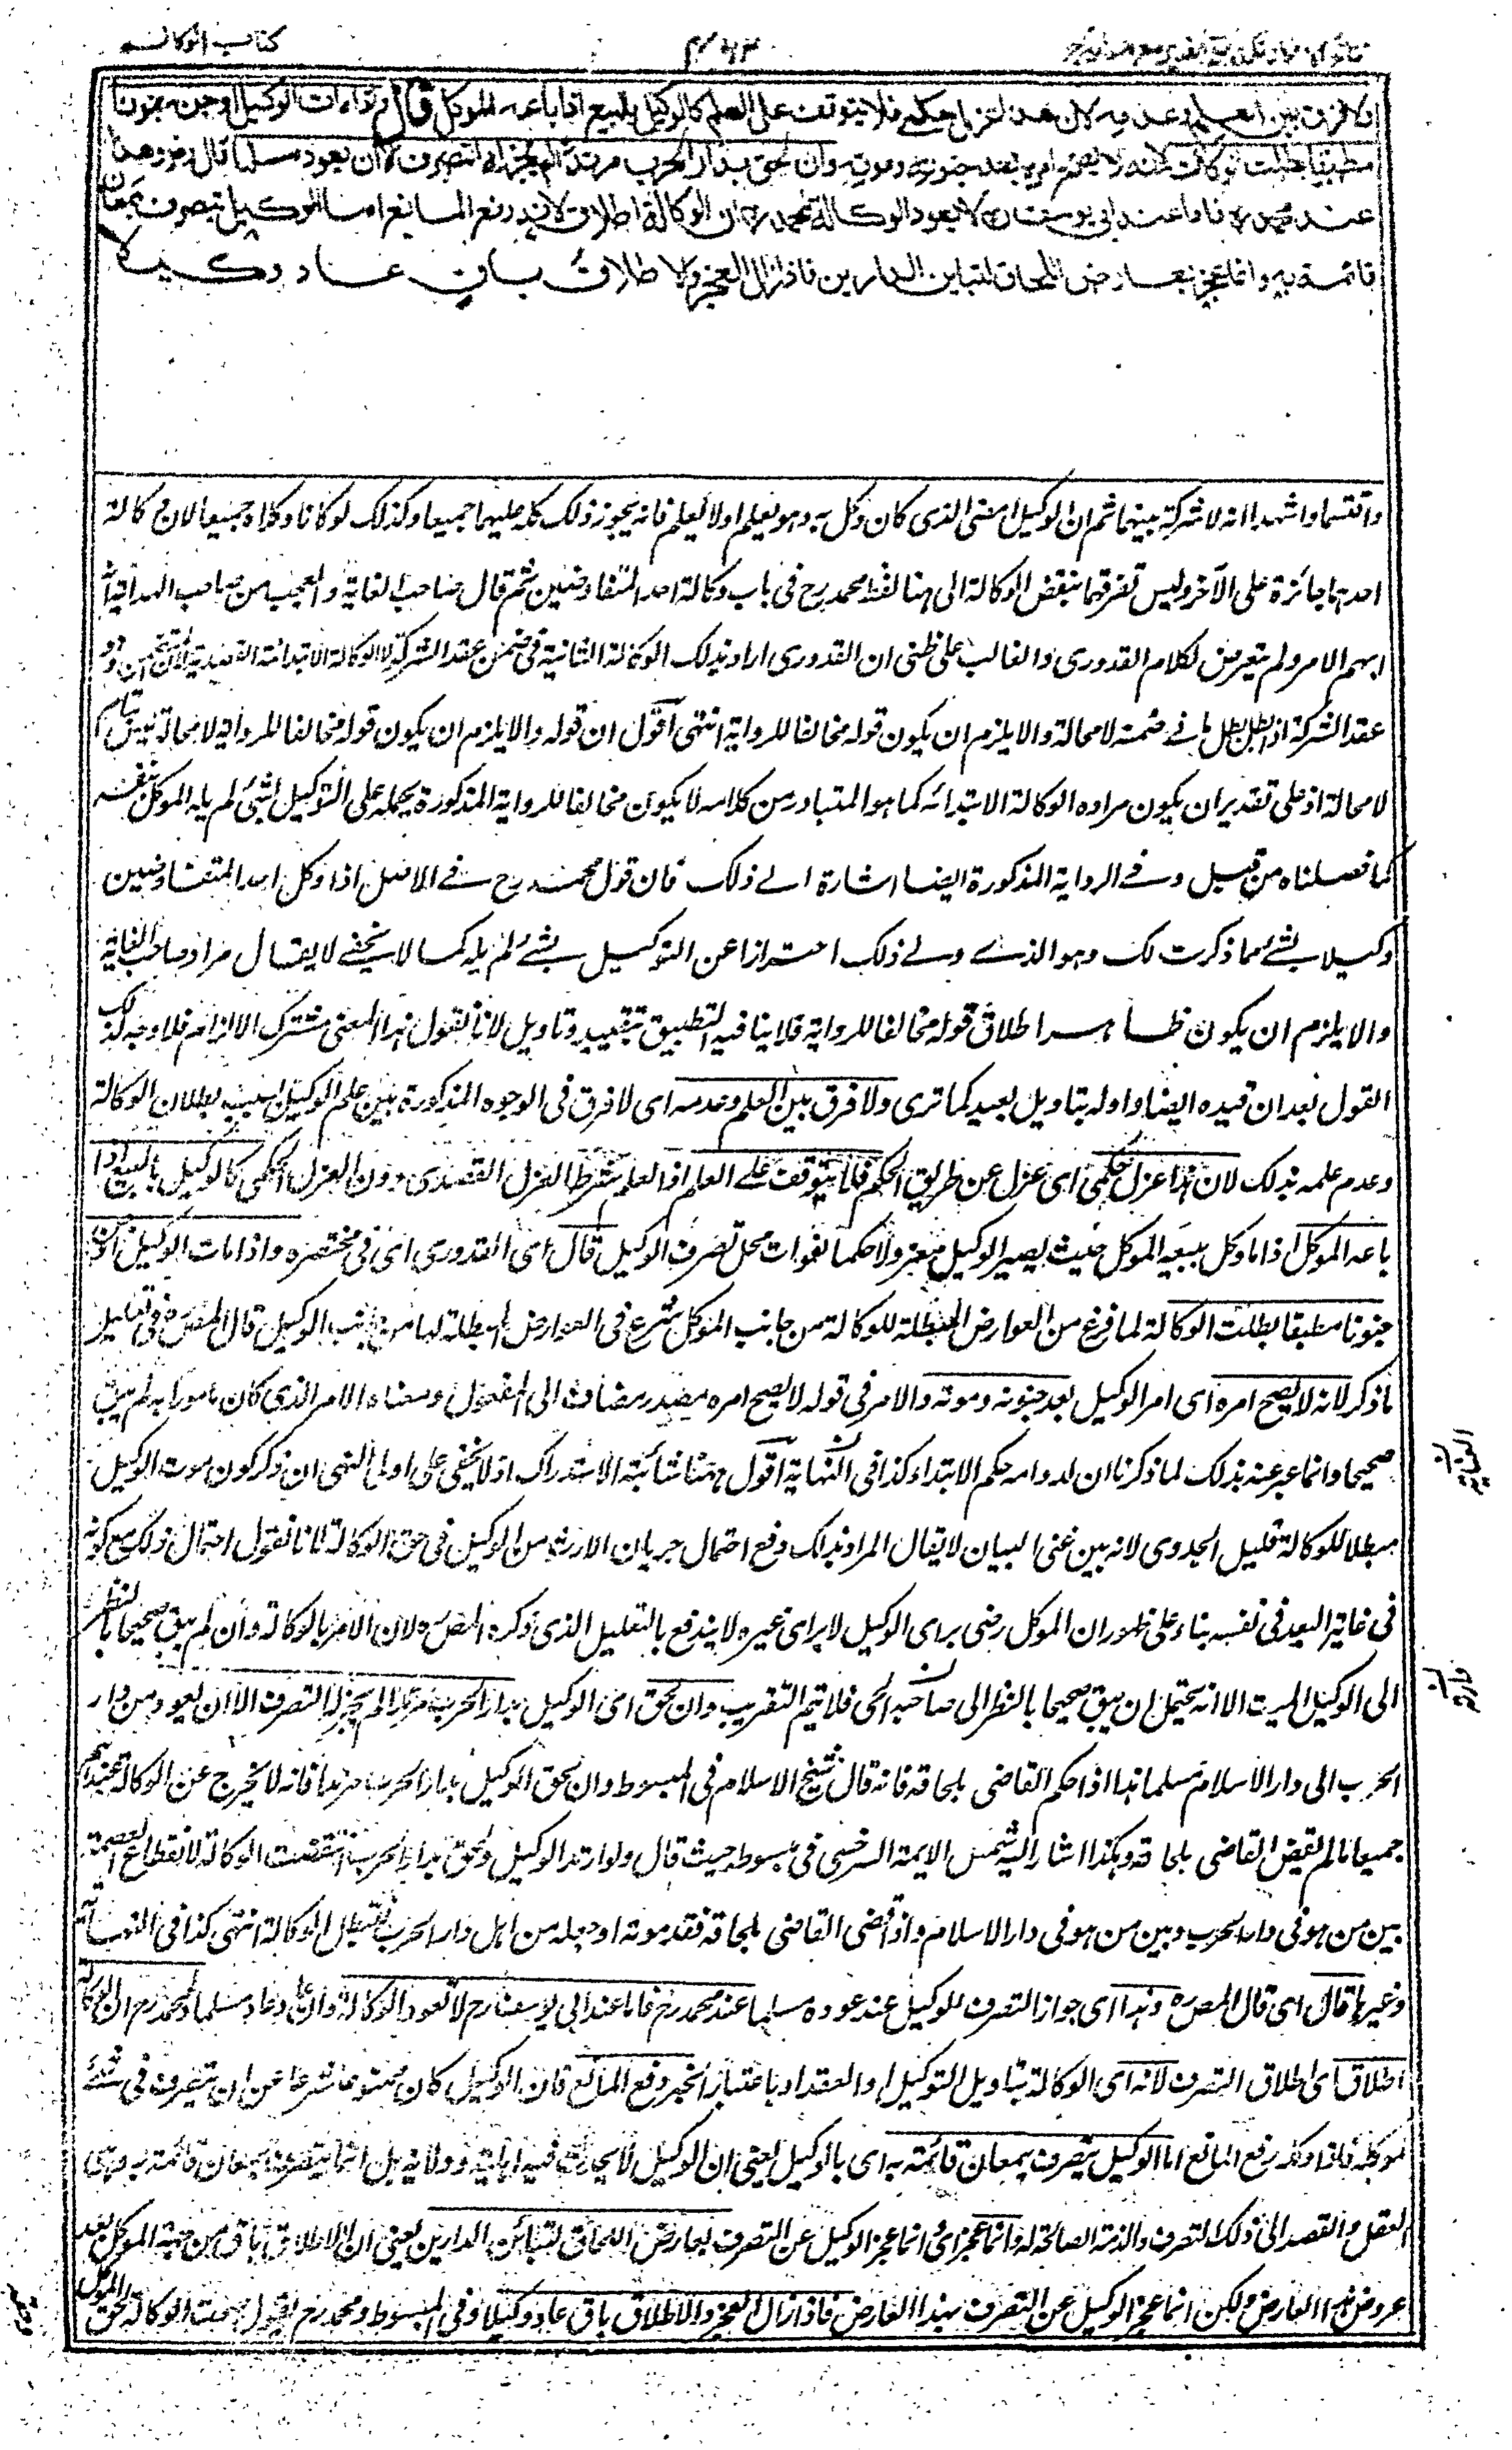 كتاب الوكالة
ولا فرق بين العلم وعدمه لان هذا عزل حكمي فلا يتوقف على العلم كالوكيل بالبيع اذا باعه الموكل قال واذا مات الوكيل او جن جنونا
مطبقا بطلت الوكالة لانه لا يصح امره بعد جنونه وموته وان لحق بدار الحرب مرتدا لم يجز له التصرف الا ان يعود مسلما قال وهذا
عند محمد فاما عند ابي يوسف لا تعود الوكالة لمحمد ان الوكالة اطلاق لانه رفع المانع اما الوكيل يتصرف بمعان
قائمة به وانما عجز بعارض اللحاق لتباين الدارين فاذا زال العجز والاطلاق باق عاد وكيلا
واقتسما واشهدا انه لا شركة بينهما ثم ان الوكيل امضى الذي كان وكل به وهو يعلم او لا يعلم فانه يجوز ذلك كله عليهما جميعا وكذلك لو كانا وكلاه جميعا لان وكالة
احدهما جائزة على الآخر وليس تفرقهما ينقض الوكالة الى هنا لفظ محمد رح في باب وكالة احد المتفاوضين ثم قال صاحب الغاية والعجب من صاحب الهداية انه
ابهم الامر ولم يتعرض لكلام القدوري والغالب على ظني ان القدوري اراد بذلك الوكالة الثانية في ضمن عقد الشركة لا الوكالة الابتدائية القصدية لان المتضمن وهو
عقد الشركة اذا بطل بطل ما في ضمنه لا محالة والا يلزم ان يكون قوله مخالفا للرواية انتهى اقول ان قوله والا يلزم ان يكون قوله مخالفا للرواية لا محالة ليس بتام
لا محالة اذ على تقدير ان يكون مراده الوكالة الابتدائية كما هو المتبادر من كلامه لا يكون مخالفا للرواية المذكورة بحمله على التوكيل بشئ لم يله الموكل بنفسه
كما فصلناه من قبل وفي الرواية المذكورة ايضا اشارة الى ذلك فان قول محمد رح في الاصل اذا وكل احد المتفاوضين
وكيلا بشئ مما ذكرت لك وهو الذي ولي ذلك احترازا عن التوكيل بشئ لم يله كما لا يخفى لا يقال مراد صاحب الغاية
والا يلزم ان يكون ظاهر اطلاق قوله مخالفا للرواية فلا ينافيه التطبيق بتقييد وتاويل لانا نقول هذا المعنى مشترك الالزام فلا وجه لذلك
القول بعد ان قيده ايضا واوله بتاويل بعيد كما ترى ولا فرق بين العلم وعدمه اى لا فرق في الوجوه المذكورة بين علم الوكيل بسبب بطلان الوكالة
وعدم علمه بذلك لان هذا عزل حكمي اى عزل عن طريق الحكم فلا يتوقف على العلم اذ العلم شرط العزل القصدي دون العزل الحكمي كالوكيل بالبيع اذا
باعه الموكل اذا ما وكل ببيعه الموكل حيث يصير الوكيل معزولا حكما لفوات محل تصرف الوكيل قال اى القدوري اى في مختصره واذا مات الوكيل او جن
جنونا مطبقا بطلت الوكالة لما فرغ من العوارض المبطلة للوكالة من جانب الموكل شرع في العوارض المبطلة لها من جانب الوكيل قال المص في تعليل
ما ذكر لانه لا يصح امره اى امر الوكيل بعد جنونه وموته والامر في قوله لا يصح امره مصدر مضاف الى المفعول ومعناه الامر الذي كان مامورا به لم يبق
صحيحا وانما عبر عنه بذلك لما ذكرنا ان لدوامه حكم الابتداء كذا في النهاية اقول ههنا شائبة الاستدراك اذ لا يخفى على اولي النهى ان ذكر كون موت الوكيل
مبطلا للوكالة قليل الجدوى لانه بين غني البيان لا يقال المراد بذلك دفع احتمال جريان الارث من الوكيل في حق الوكالة لانا نقول احتمال ذلك مع كونه
في غاية البعد في نفسه بناء على ظهور ان الموكل رضي براى الوكيل لا براى غيره لا يندفع بالتعليل الذي ذكره المص لان الامر بالوكالة وان لم يبق صحيحا بالنظر
الى الوكيل الميت الا انه يحتمل ان يبق صحيحا بالنظر الى صاحبه الحي فلا يتم التقريب وان لحق اى الوكيل بدار الحرب مرتدا لم يجز له التصرف الا ان يعود من دار
الحرب الى دار الاسلام مسلما هذا اذا حكم القاضي بلحاقه فانه قال شيخ الاسلام في المبسوط وان لحق الوكيل بدار الحرب مرتدا فانه لا يخرج عن الوكالة عندهم
جميعا ما لم يقض القاضي بلحاقه وهكذا اشار اليه شمس الائمة السرخسي في مبسوطه حيث قال ولو ارتد الوكيل ولحق بدار الحرب انتقضت الوكالة لانقطاع العصمة
بين من هو في دار الحرب وبين من هو في دار الاسلام واذا قضى القاضي بلحاقه فقد موته او جعله من اهل دار الحرب فتبطل الوكالة انتهى كذا في النهاية
وغيرها قال اى قال المصره وهذا اى جواز التصرف للوكيل عند عوده مسلما عند محمد رح فاما عند ابي يوسف رح لا تعود الوكالة وان عاد مسلما لمحمد رح ان الوكالة
اطلاق اى اطلاق التصرف لانه اى الوكالة بتاويل التوكيل او العقد او باعتبار الخبر رفع المانع فان الوكيل كان ممنوعا شرعا عن ان يتصرف في شئ
لموكله فاذا وكله رفع المانع اما الوكيل يتصرف بمعان قائمة به اى بالوكيل يعني ان الوكيل لا يحدث فيه اهلية وولاية بل انما يتصرف بمعان قائمة به وهي
العقل والقصد الى ذلك التصرف والذمة الصالحة له وانما عجز اى وانما عجز الوكيل عن التصرف بعارض اللحاق لتباين الدارين يعني ان الاطلاق باق من جهة الموكل بعد
عروض هذا العارض ولكن انما عجز الوكيل عن التصرف بهذا العارض فاذا زال العجز والاطلاق باق عاد وكيلا وفي المبسوط ومحمد رح يقول صحت الوكالة لحق الموكل